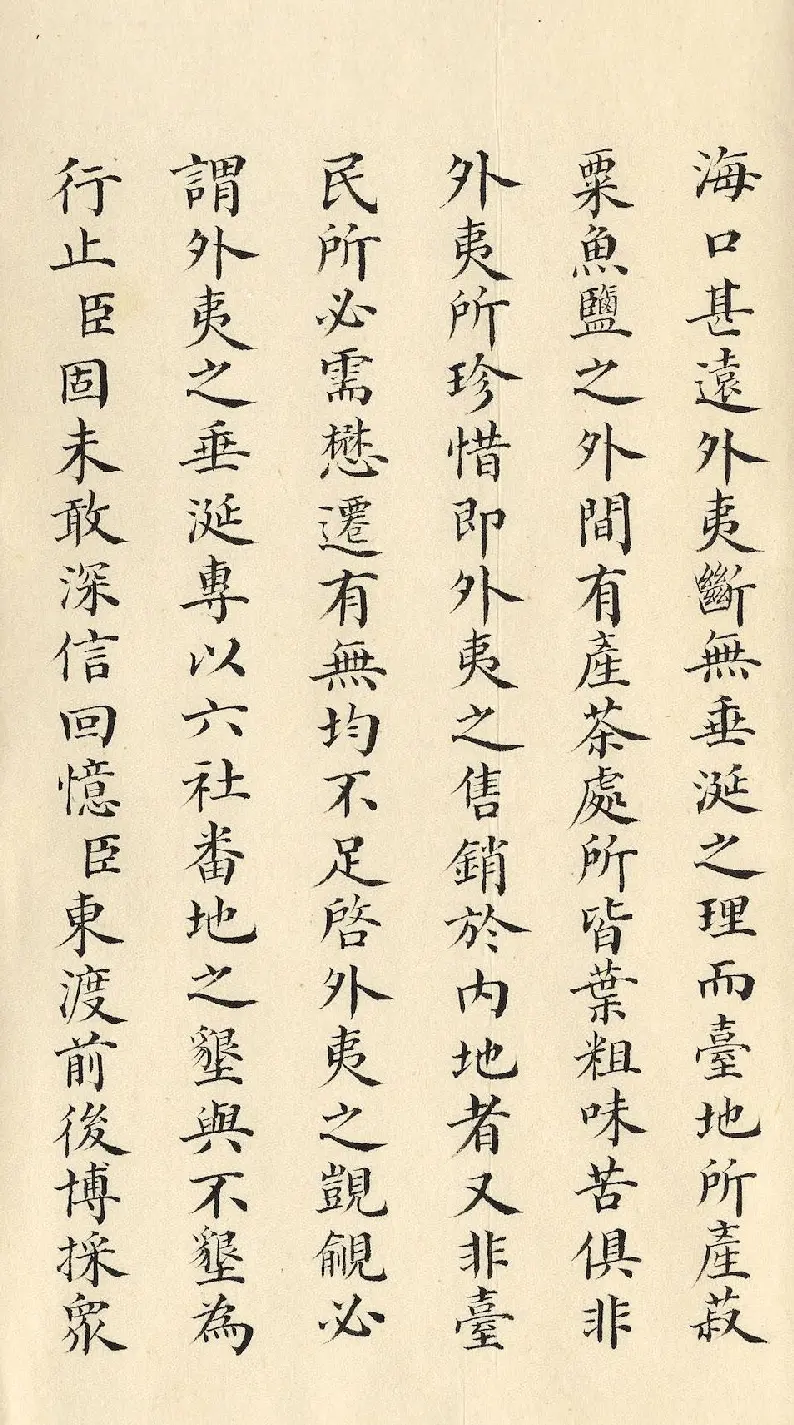 海口甚遠外夷斷無垂涎之理而臺地所產菽
粟魚鹽之外間有產茶處所皆葉粗味苦俱非
外夷所珍惜即外夷之售銷於內地者又非臺
民所必需懋遷有無均不足啓外夷之覬覦必
謂外夷之垂涎專以六社番地之墾與不墾為
行止臣固未敢深信回憶臣東渡前後博採眾